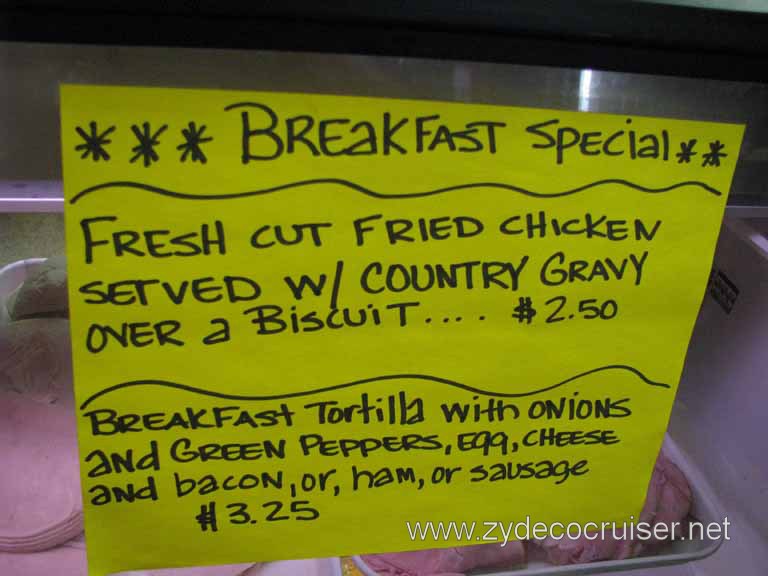 *** BREAKFAST Special **
FRESH CUT FRIED CHICKEN
SERVED W/ COUNTRY GRAVY
OVER a BiscuiT.... $2.50
BREAKFAST Tortilla with ONIONS
and GREEN PEPPERS, Egg, CHEESE
and bacon, or, ham, or sausage
$3.25
www.zydecocruiser.net